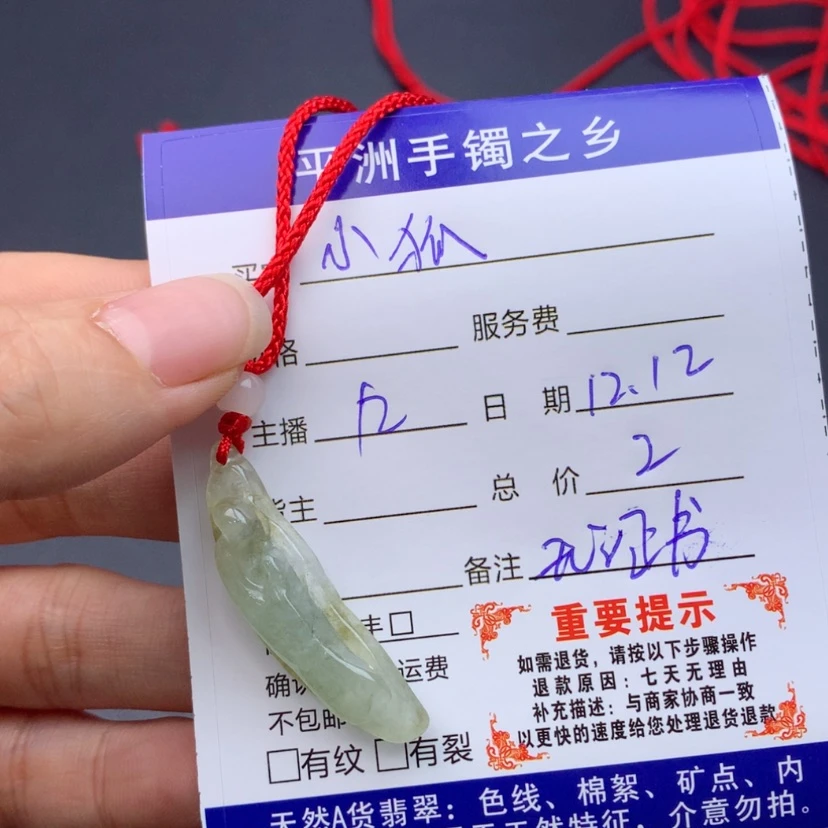 平洲手镯之乡
买家 小狐
价格 服务费
主播 日 期 12.12
货主 总 价 2
备注 无证书
丰□
确认 运费
不包邮
□有纹 □有裂
重要提示
如需退货，请按以下步骤操作
退款原因：七天无理由
补充描述：与商家协商一致
以更快的速度给您处理退货退款
天然A货翡翠：色线、棉絮、矿点、内
天然特征，介意勿拍。